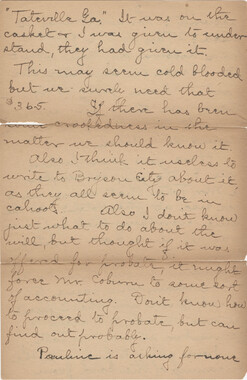 "Tateville Ga." It was on the
casket & I was given to under
stand, they had given it.
This may seem cold blooded
but we surely need that
$365. If there has been
some crookedness in the
matter we should know it.
Also I think it useless to
write to Bryson City about it,
as they all seem to be in
cahoots. Also I don't know
just what to do about the
will, but thought if it was
offered for probate, it might
force Mr. Coburn to some sort
of accounting. Don't know how
to proceed to probate, but can
find out probably.
Pauline is asking for